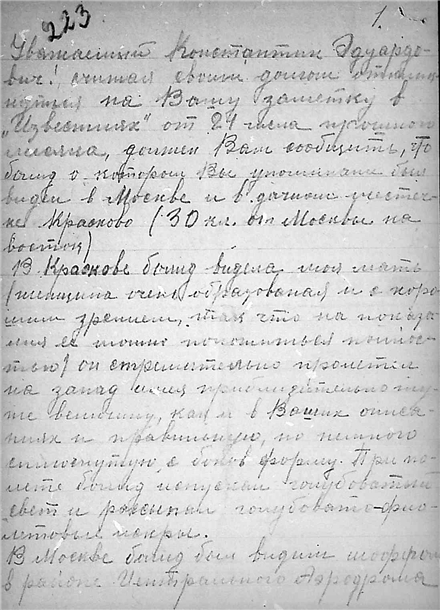 223
1.
Уважаемый Константин Эдуардо-
вич! считая своим долгом отклик-
нуться на Вашу заметку в
„Известиях" от 24 числа прошлого
месяца, должен Вам сообщить, что
болид о котором Вы упоминали был
виден в Москве и в дачном местеч-
ке Красково (30 кл. от Москвы на
восток)
В Краскове болид видела моя мать
(женщина очень образованая и с хоро-
шим зрением, так что на показа-
ния её можно положиться полнос-
тью) он стремительно пролетел
на запад имея приблизительно ту-
же величину, как и в Ваших описа-
ниях и правильную, но немного
сплюснутую с боков форму. При по-
лете болид испускал голубоватый
свет и рассыпал голубовато-фио-
летовые искры.
В Москве болид был видим шофером
в районе Центрального Аэродрома